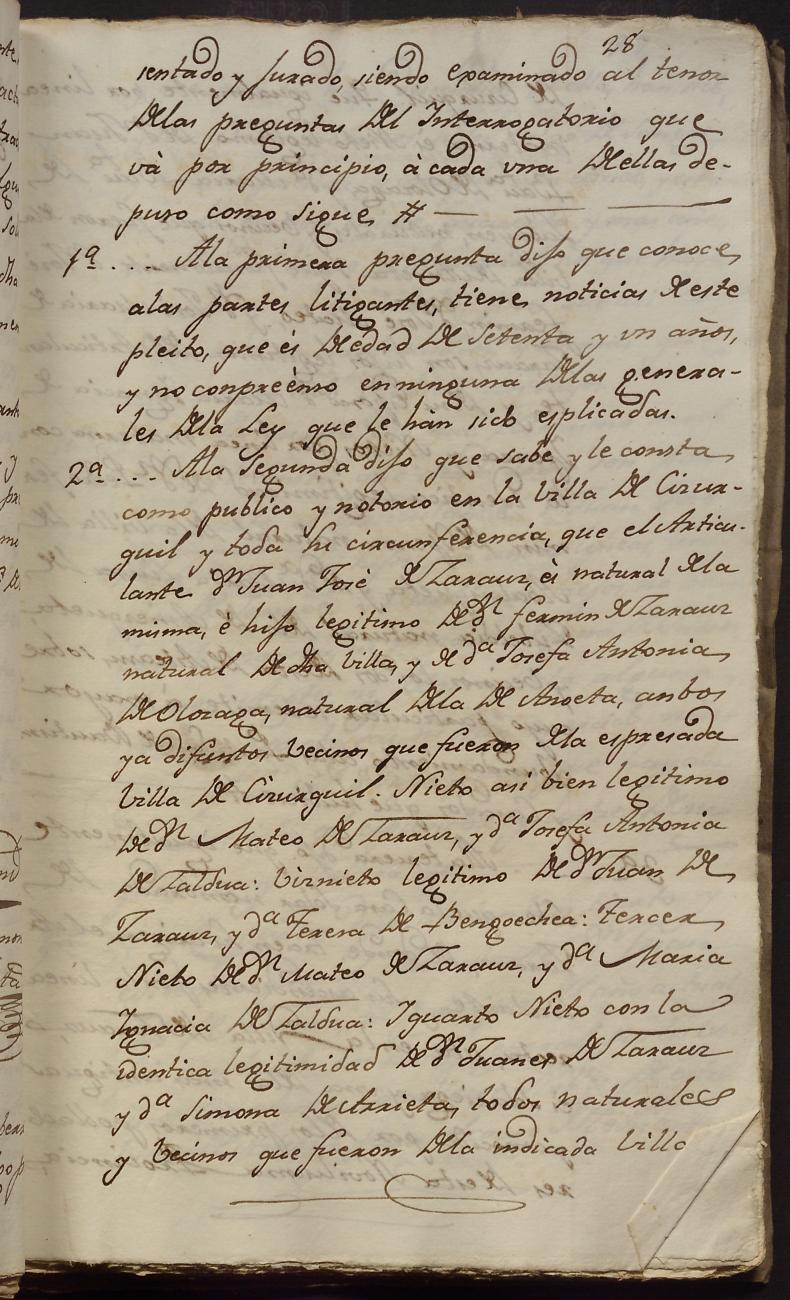 28
sentado y Jurado, siendo examinado al tenor
Delas preguntas Del Interrogatorio que
và por principio, à cada vna Dellas de-
puso como sigue #
1ª.... Ala primera pregunta dijo que conoce
alas partes litigantes, tiene noticias deeste
pleito, que és Deedad De setenta y vn años,
y no conpreènso enninguna Delas genera-
les Dela Ley que le hàn sido esplicadas.
2ª.... Ala Segunda dijo que sabe y le consta
como publico y notorio en la Villa De Cizur-
guil y toda su circunferencia, que el Articu-
lante Dn Juan Josè deZarauz, ès natural dela
misma, è hijo legitimo Dedn fermin deZarauz
natural Dedha Villa, y de dª Josefa Antonia
DeOlozaga, natural Dela De Anoeta, anbos
ya difuntos Vecinos que fueron dela espresada
Villa De Cizurguil. Nieto asi bien legitimo
Dedn Mateo DeZarauz, y dª Josefa Antonia
DeZaldua: Virnieto legitimo De dn Juan De
Zarauz, y dª Teresa De Bengoechea: Tercer
Nieto Dedn Mateo deZarauz, y dª Maria
Ignacia DeZaldua: I quarto Nieto con la
identica legitimidad Dedn Juanes DeZarauz
y dª Simona DeArrieta, todos naturales
y Vecinos que fueron Dela indicada Villa